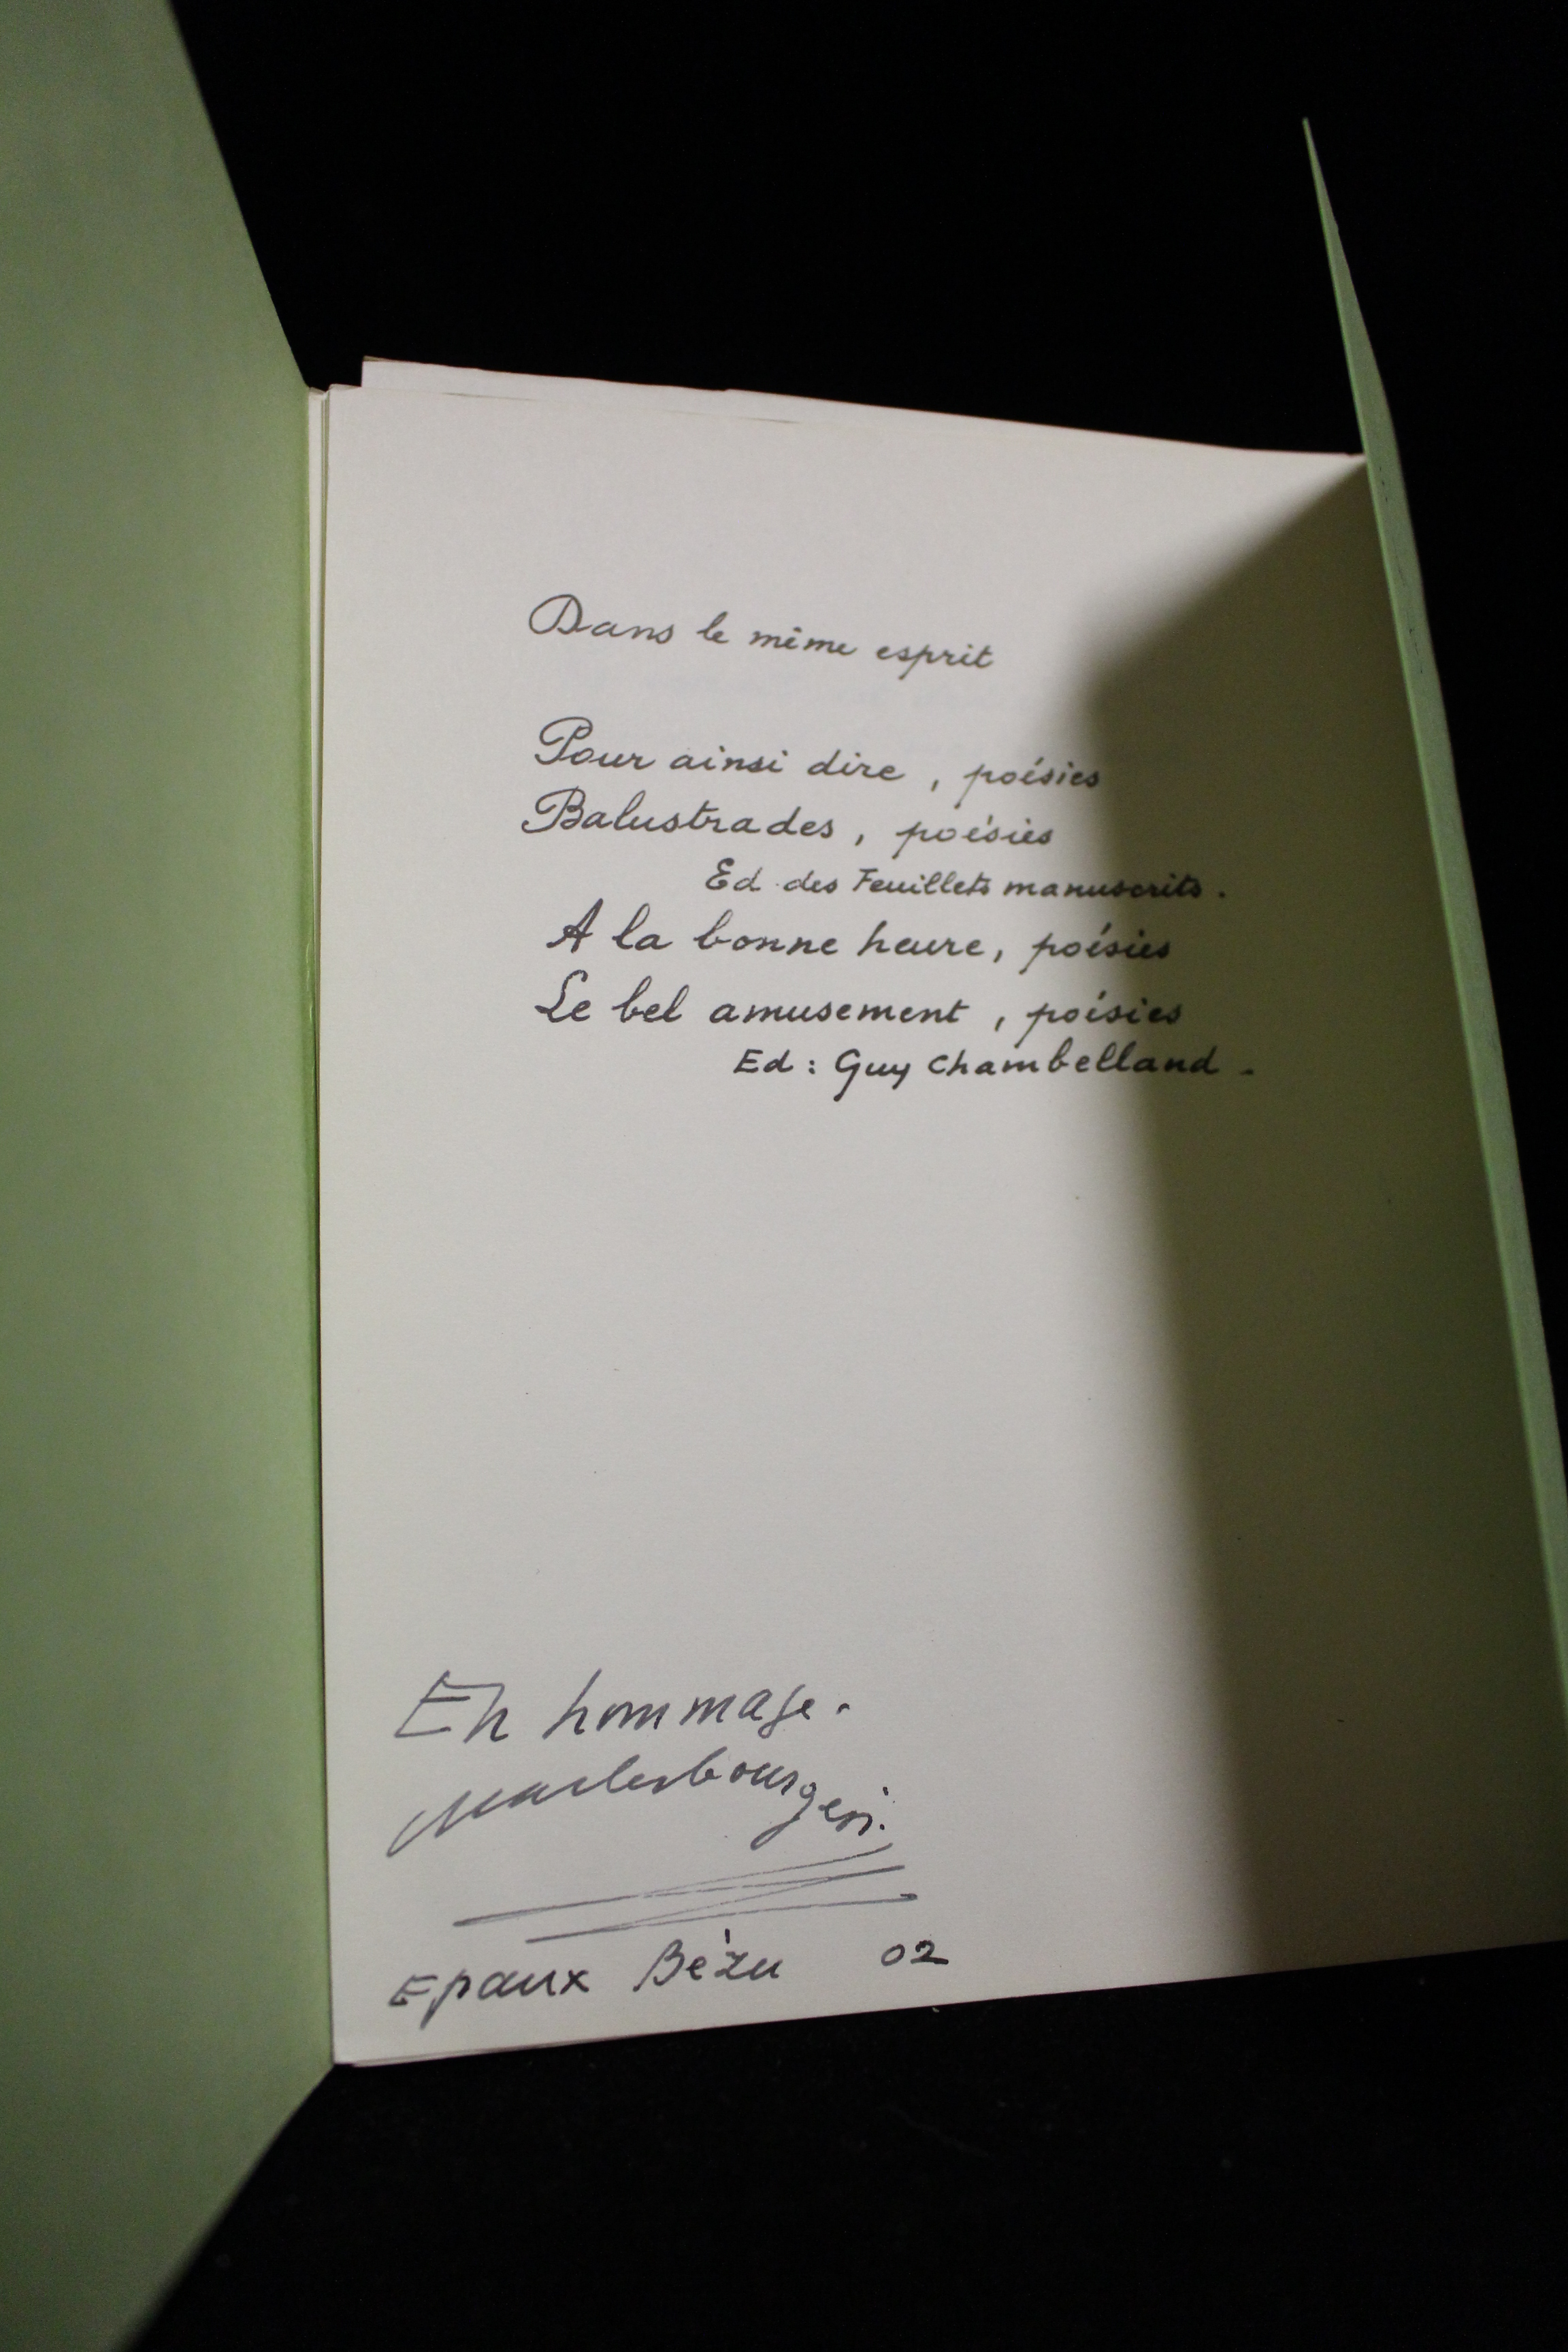 Dans le même esprit
Pour ainsi dire, poésies
Balustrades, poésies
Ed. des Feuillets manuscrits.
A la bonne heure, poésies
Le bel amusement, poésies
Ed: Guy Chambelland.
En hommage.
Epaux Bézu 02